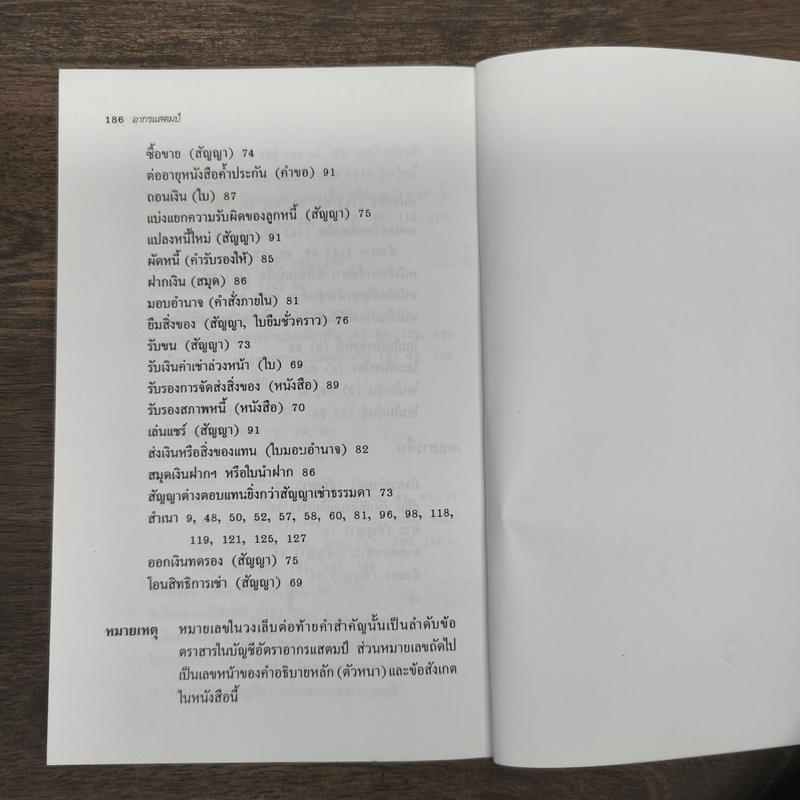 186 อากรแสตมป์
ซื้อขาย (สัญญา) 74
ต่ออายุหนังสือค้ำประกัน (คำขอ) 91
ถอนเงิน (ใบ) 87
แบ่งแยกความรับผิดของลูกหนี้ (สัญญา) 75
แปลงหนี้ใหม่ (สัญญา) 91
ผัดหนี้ (คำรับรองให้) 85
ฝากเงิน (สมุด) 86
มอบอำนาจ (คำสั่งภายใน) 81
ยืมสิ่งของ (สัญญา, ใบยืมชั่วคราว) 76
รับขน (สัญญา) 73
รับเงินค่าเช่าล่วงหน้า (ใบ) 69
รับรองการจัดส่งสิ่งของ (หนังสือ) 89
รับรองสภาพหนี้ (หนังสือ) 70
เล่นแชร์ (สัญญา) 91
ส่งเงินหรือสิ่งของแทน (ใบมอบอำนาจ) 82
สมุดเงินฝากฯ หรือใบนำฝาก 86
สัญญาต่างตอบแทนยิ่งกว่าสัญญาเช่าธรรมดา 73
สำเนา 9, 48, 50, 52, 57, 58, 60, 81, 96, 98, 118,
119, 121, 125, 127
ออกเงินทดรอง (สัญญา) 75
โอนสิทธิการเช่า (สัญญา) 69
หมายเหตุ หมายเลขในวงเล็บต่อท้ายคำสำคัญนั้นเป็นลำดับข้อ
ตราสารในบัญชีอัตราอากรแสตมป์ ส่วนหมายเลขถัดไป
เป็นเลขหน้าของคำอธิบายหลัก (ตัวหนา) และข้อสังเกต
ในหนังสือนี้